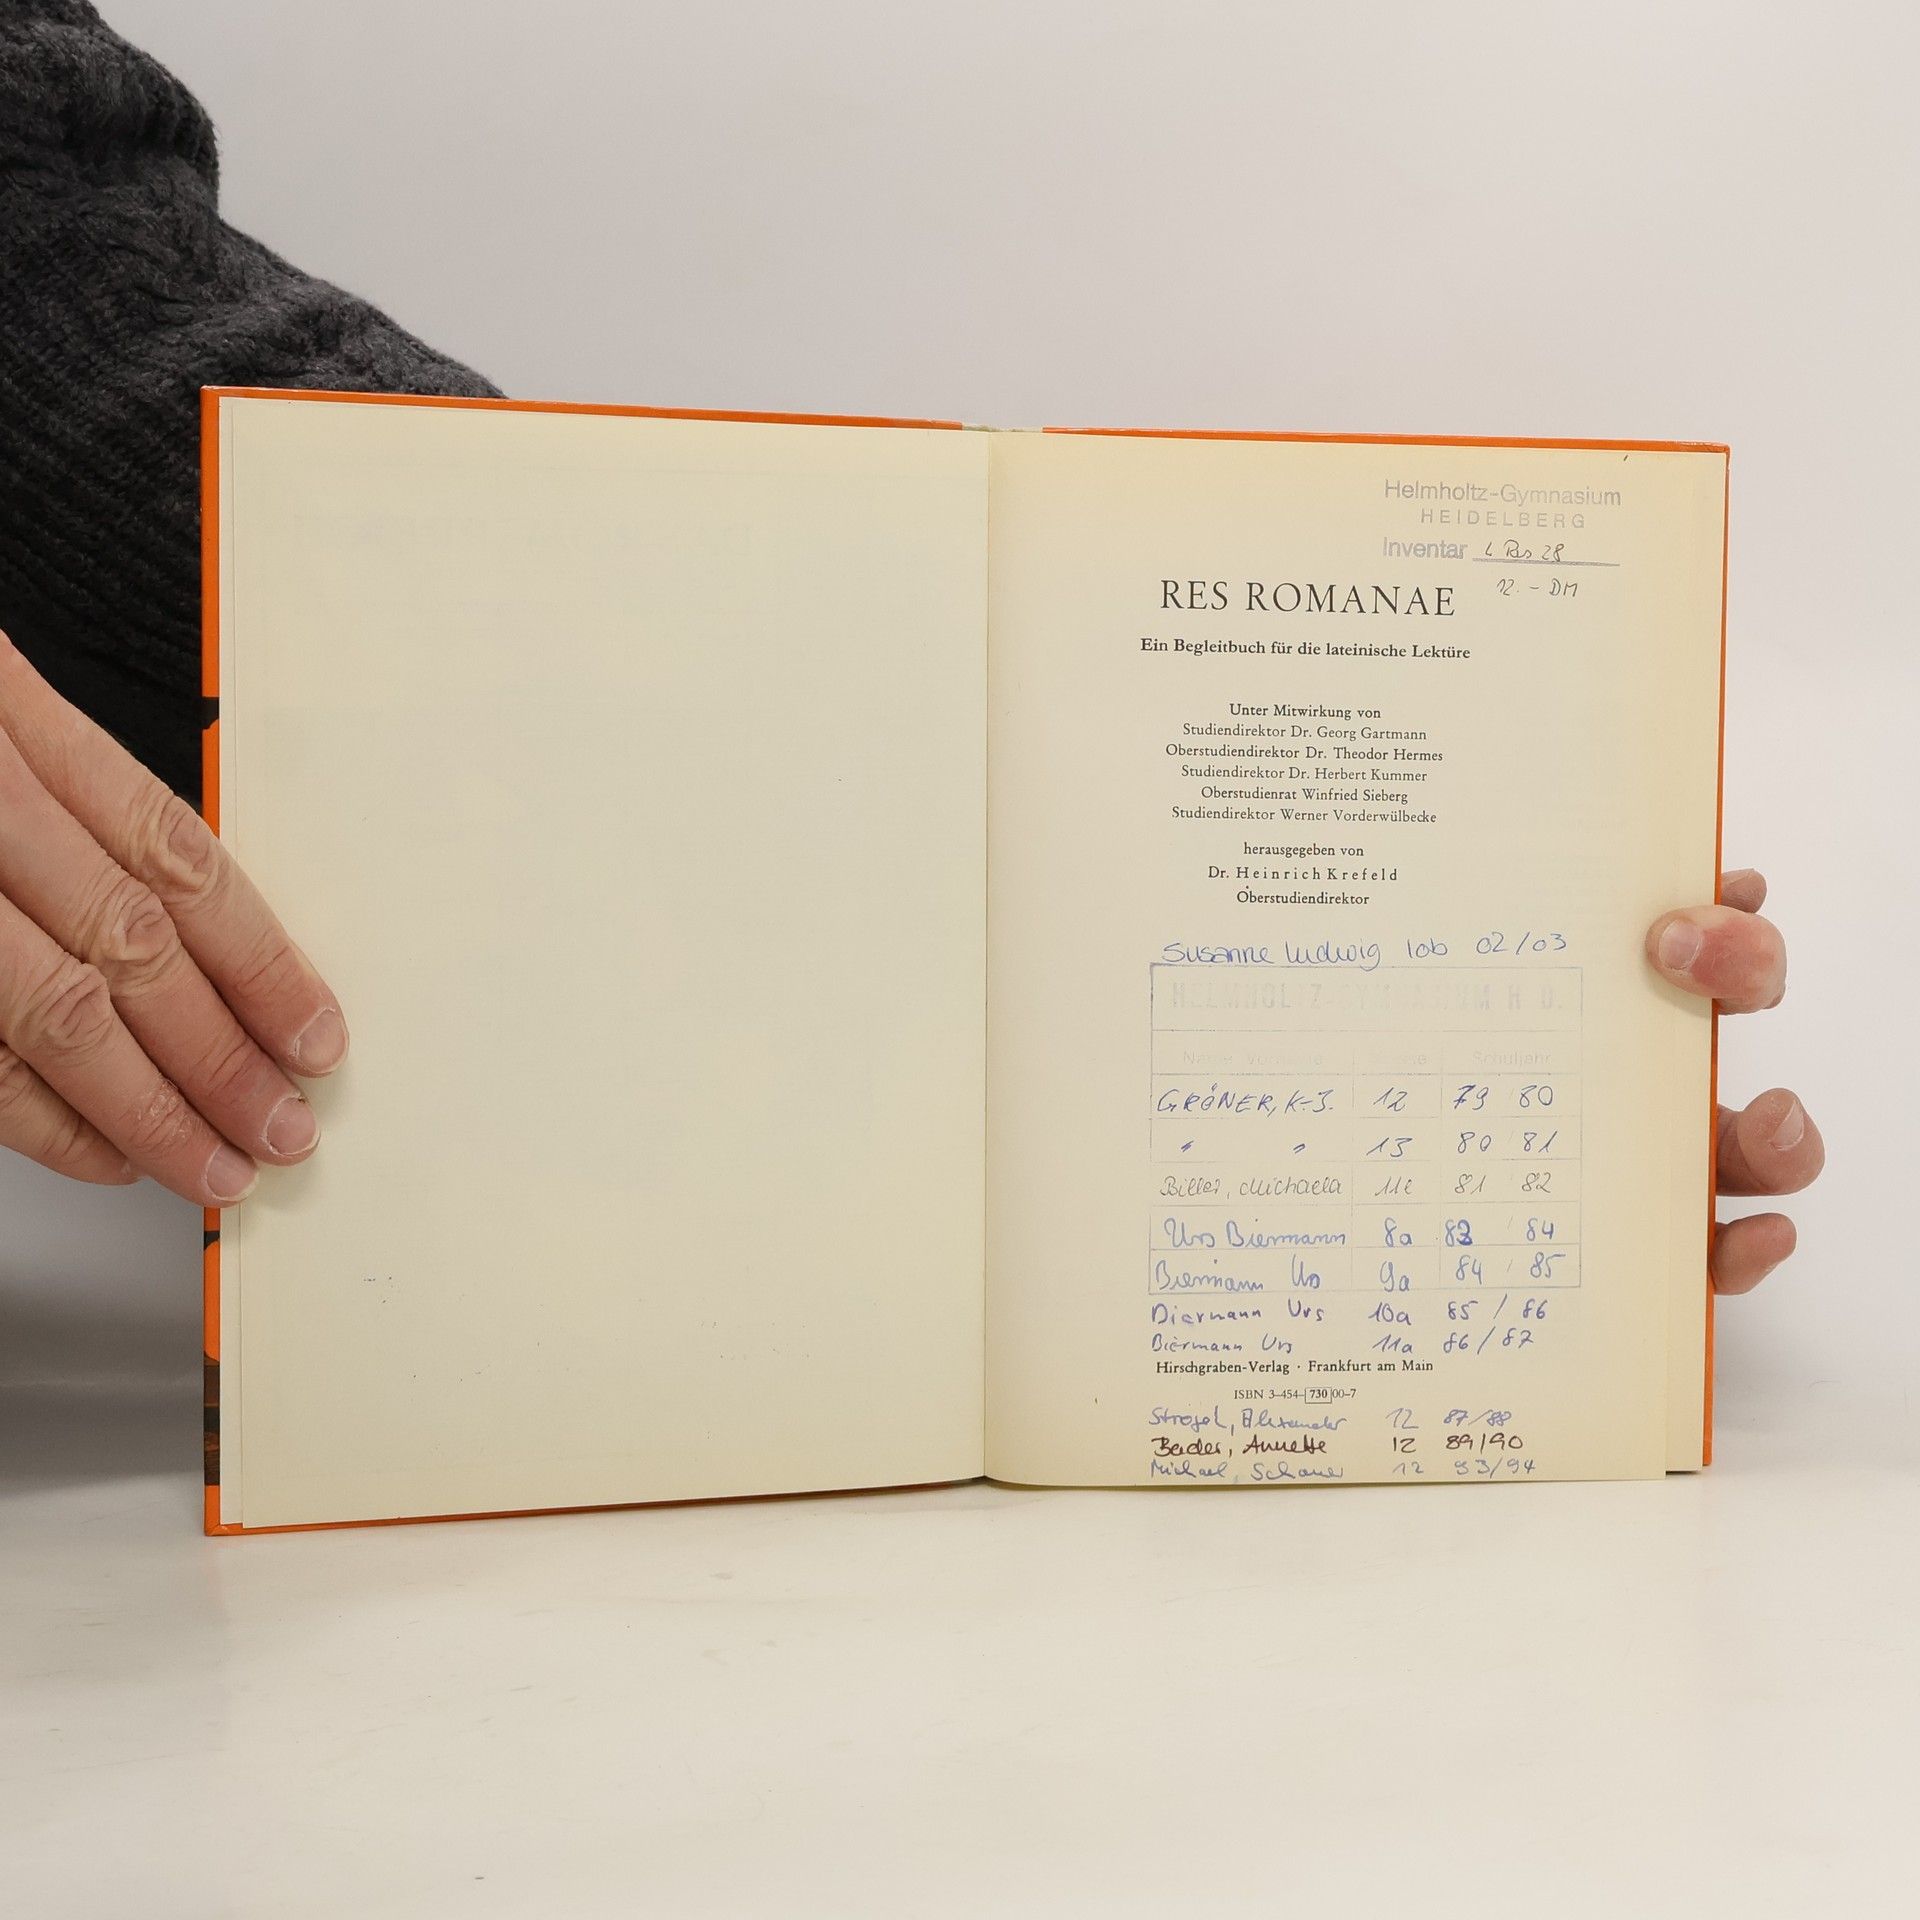 Helmholtz-Gymnasium
HEIDELBERG
Inventar L Res 28
12.- DM
RES ROMANAE
Ein Begleitbuch für die lateinische Lektüre
Unter Mitwirkung von
Studiendirektor Dr. Georg Gartmann
Oberstudiendirektor Dr. Theodor Hermes
Studiendirektor Dr. Herbert Kummer
Oberstudienrat Winfried Sieberg
Studiendirektor Werner Vorderwülbecke
herausgegeben von
Dr. Heinrich Krefeld
Oberstudiendirektor
Susanne Ludwig 10b 02/03
HELMHOLTZ-GYMNASIUM H D.
Name Vorname Klasse Schuljahr
GRÖNER, K-J. 12 79 80
" " 13 80 81
Michaela 11e 81 82
Urs Biermann 8a 83 / 84
Biermann Urs 9a 84 / 85
Biermann Urs 10a 85 / 86
Biermann Urs 11a 86 / 87
Hirschgraben-Verlag · Frankfurt am Main
ISBN 3-454-730 00-7
Alexander 12 87/88
Bader, Annette 12 89/90
Michael, Schauer 12 93/94